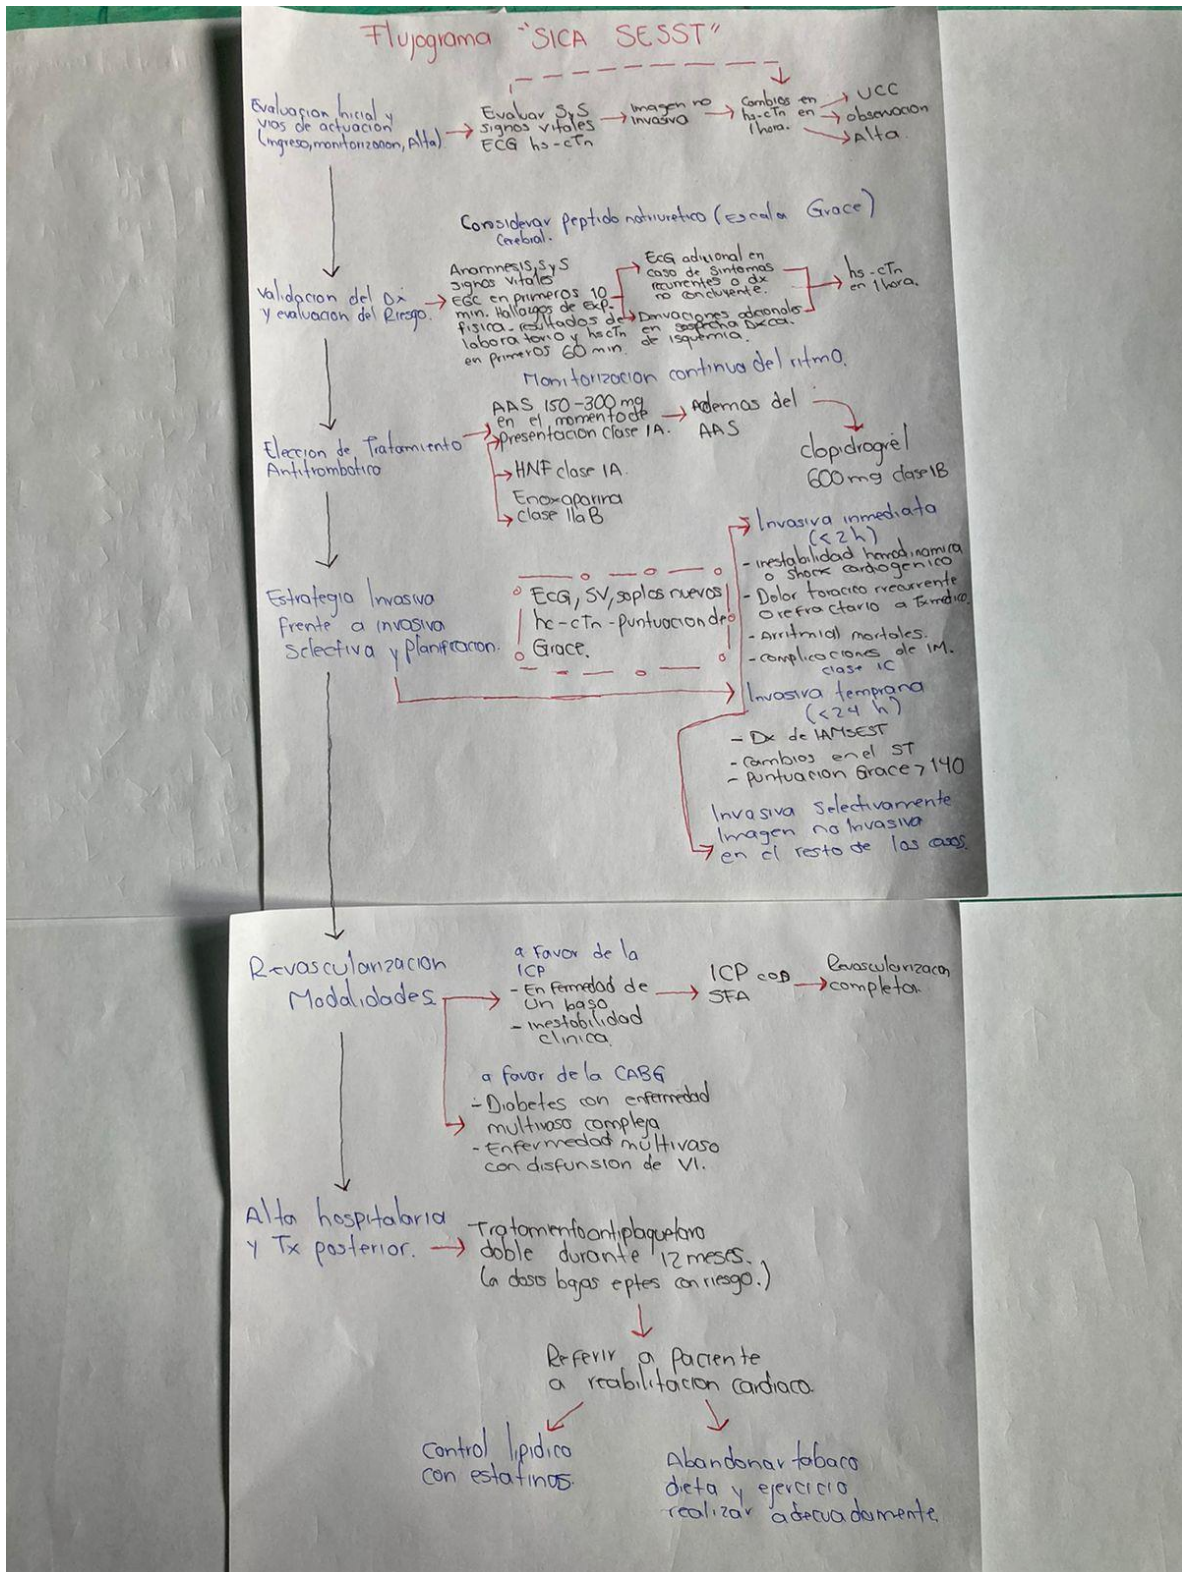 Flujograma "SICA SESST"
Evaluacion Inicial y
vias de actuacion
(ingreso, monitorizacion, Alta)
Evaluar SyS
signos vitales
ECG hs-cTn
Imagen no
invasiva
Cambios en
hs-cTn en
1 hora.
UCC
observacion
Alta
Considerar peptido natriuretico (Escala Grace)
Cerebral.
Validacion del Dx
y evaluacion del Riesgo.
Anamnesis, SyS
signos vitales
EGC en primeros 10
min. Hallazgos de exp.
fisica - resultados de
laboratorio y hscTn
en primeros 60 min.
ECG adicional en
caso de sintomas
recurrentes o dx
no concluyente.
Derivaciones adicionales
en sospecha Dxca.
de isquemia.
hs-cTn
en 1 hora.
Monitorizacion continua del ritmo.
Eleccion de Tratamiento
Antitrombotico
AAS 150-300 mg
en el momento de
presentacion Clase 1A.
HNF clase 1A.
Enoxaparina
clase IIa B
Ademas del
AAS
clopidrogrel
600 mg clase 1B
Estrategia Invasiva
frente a invasiva
selectiva y planificacion.
ECG, SV, soplos nuevos
hc-cTn - puntuacion de
Grace.
Invasiva inmediata
(<2h)
- inestabilidad hemodinamica
o shock cardiogenico
- Dolor toracico rrecurrente
o refractario a Tx medico.
- Arritmial mortales.
- complicaciones de IM.
clase 1C
Invasiva temprana
(<24 h)
- Dx de IAMSEST
- cambios en el ST
- puntuacion Grace > 140
Invasiva Selectivamente
Imagen no Invasiva
en el resto de los casos.
Revascularizacion
Modalidades.
a favor de la
ICP
- Enfermedad de
un baso
- inestabilidad
clinica.
ICP con
SFA
Revascularizacon
completa.
a favor de la CABG
- Diabetes con enfermedad
multivaso compleja
- Enfermedad multivaso
con disfunsion de VI.
Alta hospitalaria
y Tx posterior.
Tratamento antiplaquetaro
doble durante 12 meses.
(a dosis bajas eptes con riesgo.)
Referir a Paciente
a reabilitacion cardiaca.
Control lipidico
con estatinas.
Abandonar tabaco
dieta y ejercicio
realizar adecuadamente.